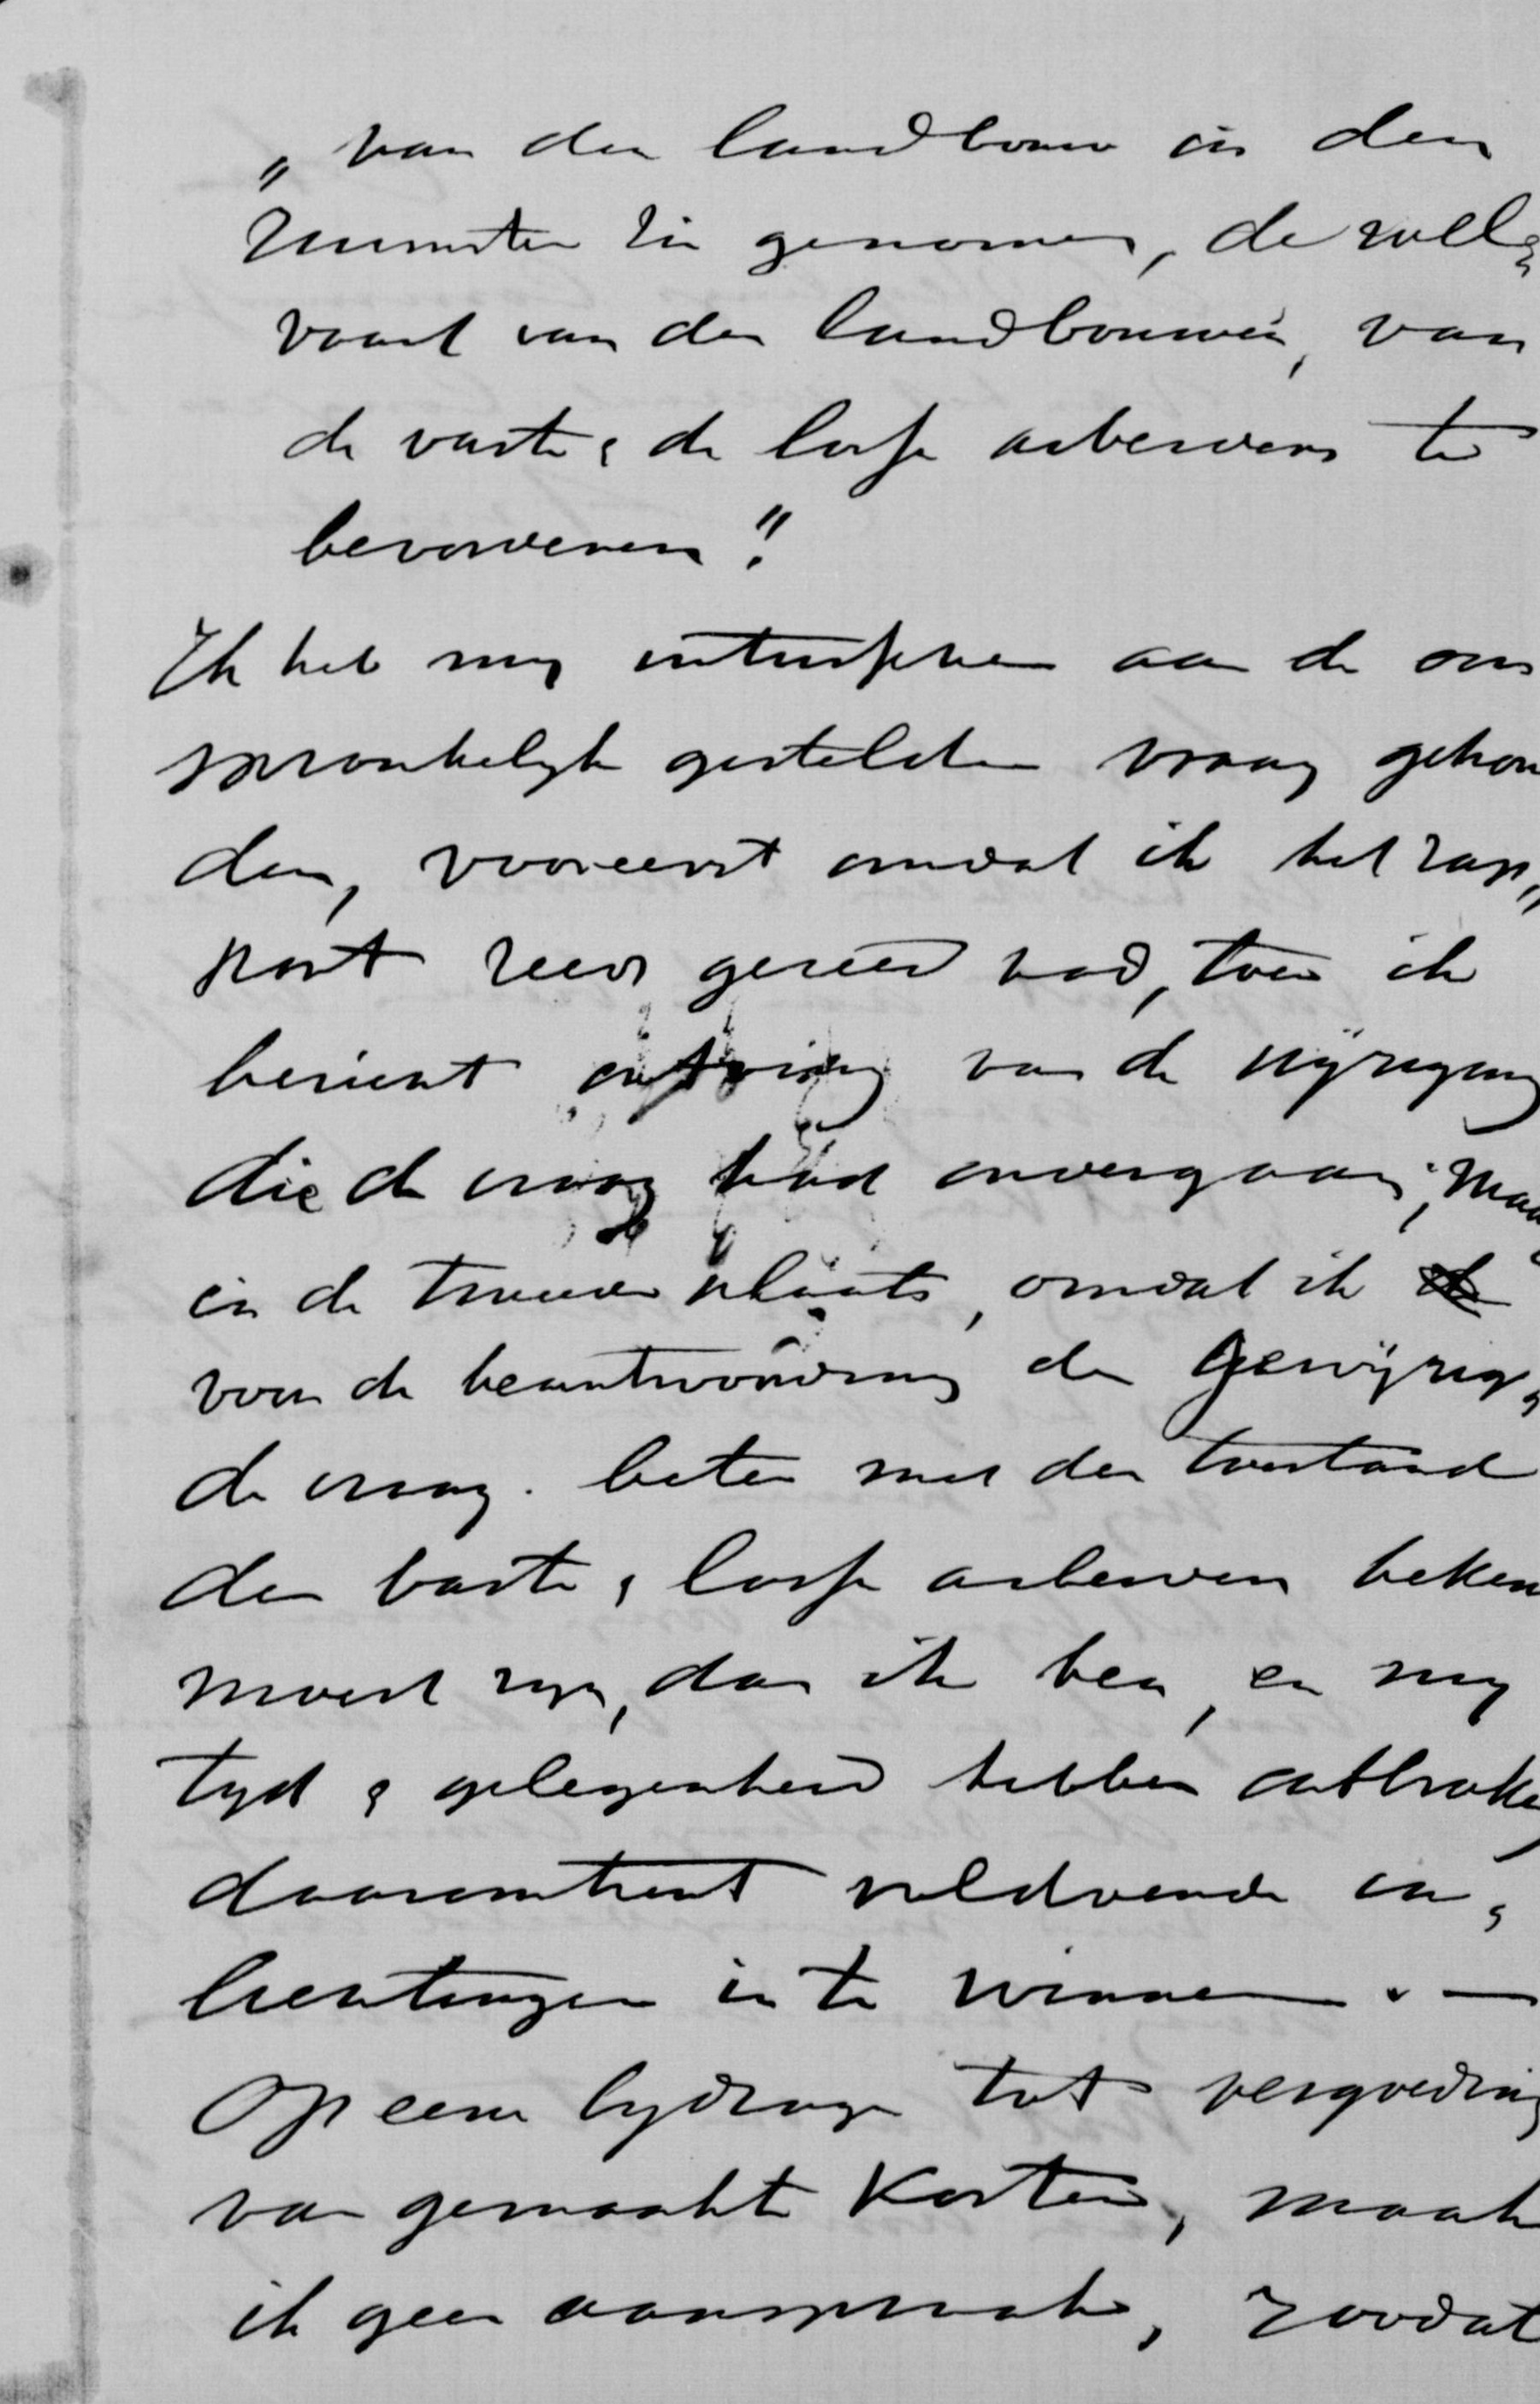 „van den landbouw in den
ruimsten zin genomen, de wel„
vaart van den landbouwer, van
de vaste & de losse arbeiders te
bevorderen".
Ik heb mij intusschen aan de oor
spronkelijk gestelde vraag gehou
den, vooreerst omdat ik het rap„
port reeds gereed had, toen ik
bericht ontving van de wijziging
die de vraag had ondergaan; maar
in de tweede plaats, omdat ik
voor de beantwoording der gewijzig„
de vraag beter met den toestand
der vaste & losse arbeiders bekend
moest zijn, dan ik ben, en mij
tijd & gelegenheid hebben ontbroken
daaromtrent voldoende in„
lichtingen in te winnen. —
Op eene bijdrage tot vergoeding
van gemaakte kosten, maak
ik geen aanspraak, zoodat